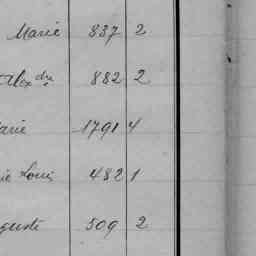 Marie 837 2
Alexdre 882 2
arie 1791 4
ie Louis 482 1
guste 509 2